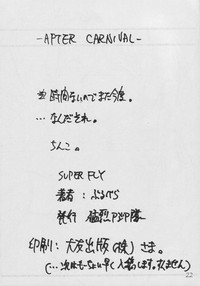 -AFTER CARNIVAL-
時間ないのでまた今度。
…なんだそれ。
ちんこ。
SUPER FLY
著者:ぶるべら
発行 猛烈P/P隊
印刷:大友出版(株)さま。
(…次はもーちょい早く入稿します。すいません)
22